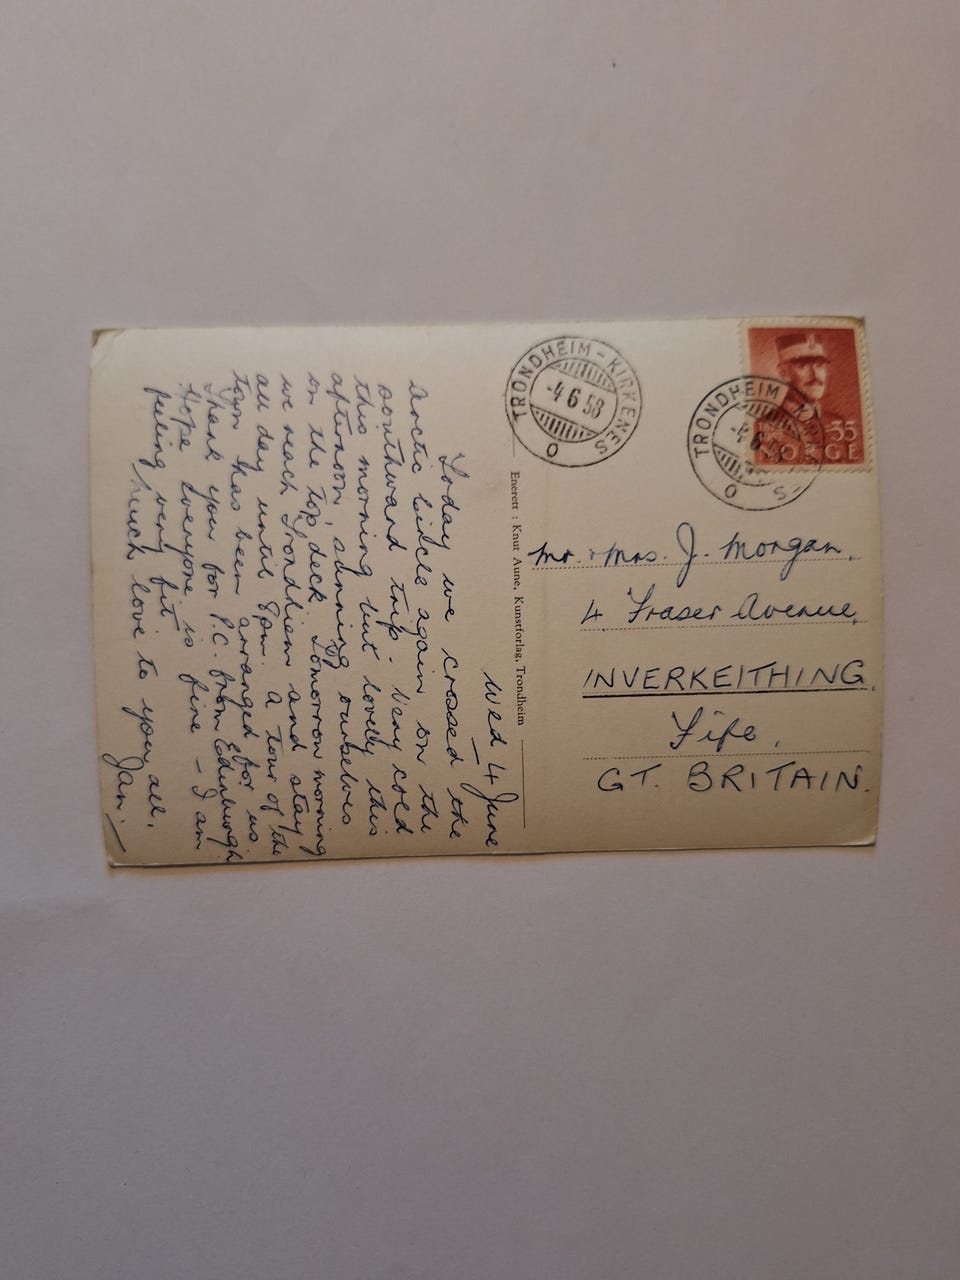 Wed 4 June
Today we crossed the
Arctic Circle again on the
southward trip. Very cold
this morning but lovely this
afternoon, sunning ourselves
on the top deck. Tomorrow morning
we reach Trondhiem and stay
all day until 8pm. A tour of the
town has been arranged for us.
Thank you for P.C. from Edinburgh
Hope everyone is fine - I am
feeling very fit
Much love to you all,
Jan.
Enerett : Knut Aune, Kunstforlag, Trondheim
TRONDHEIM - KIRKENES
-4 6 58
O S
TRONDHEIM
35
NORGE
Mr. + Mrs. J. Morgan,
4 Fraser Avenue,
INVERKEITHING,
Fife,
GT. BRITAIN.